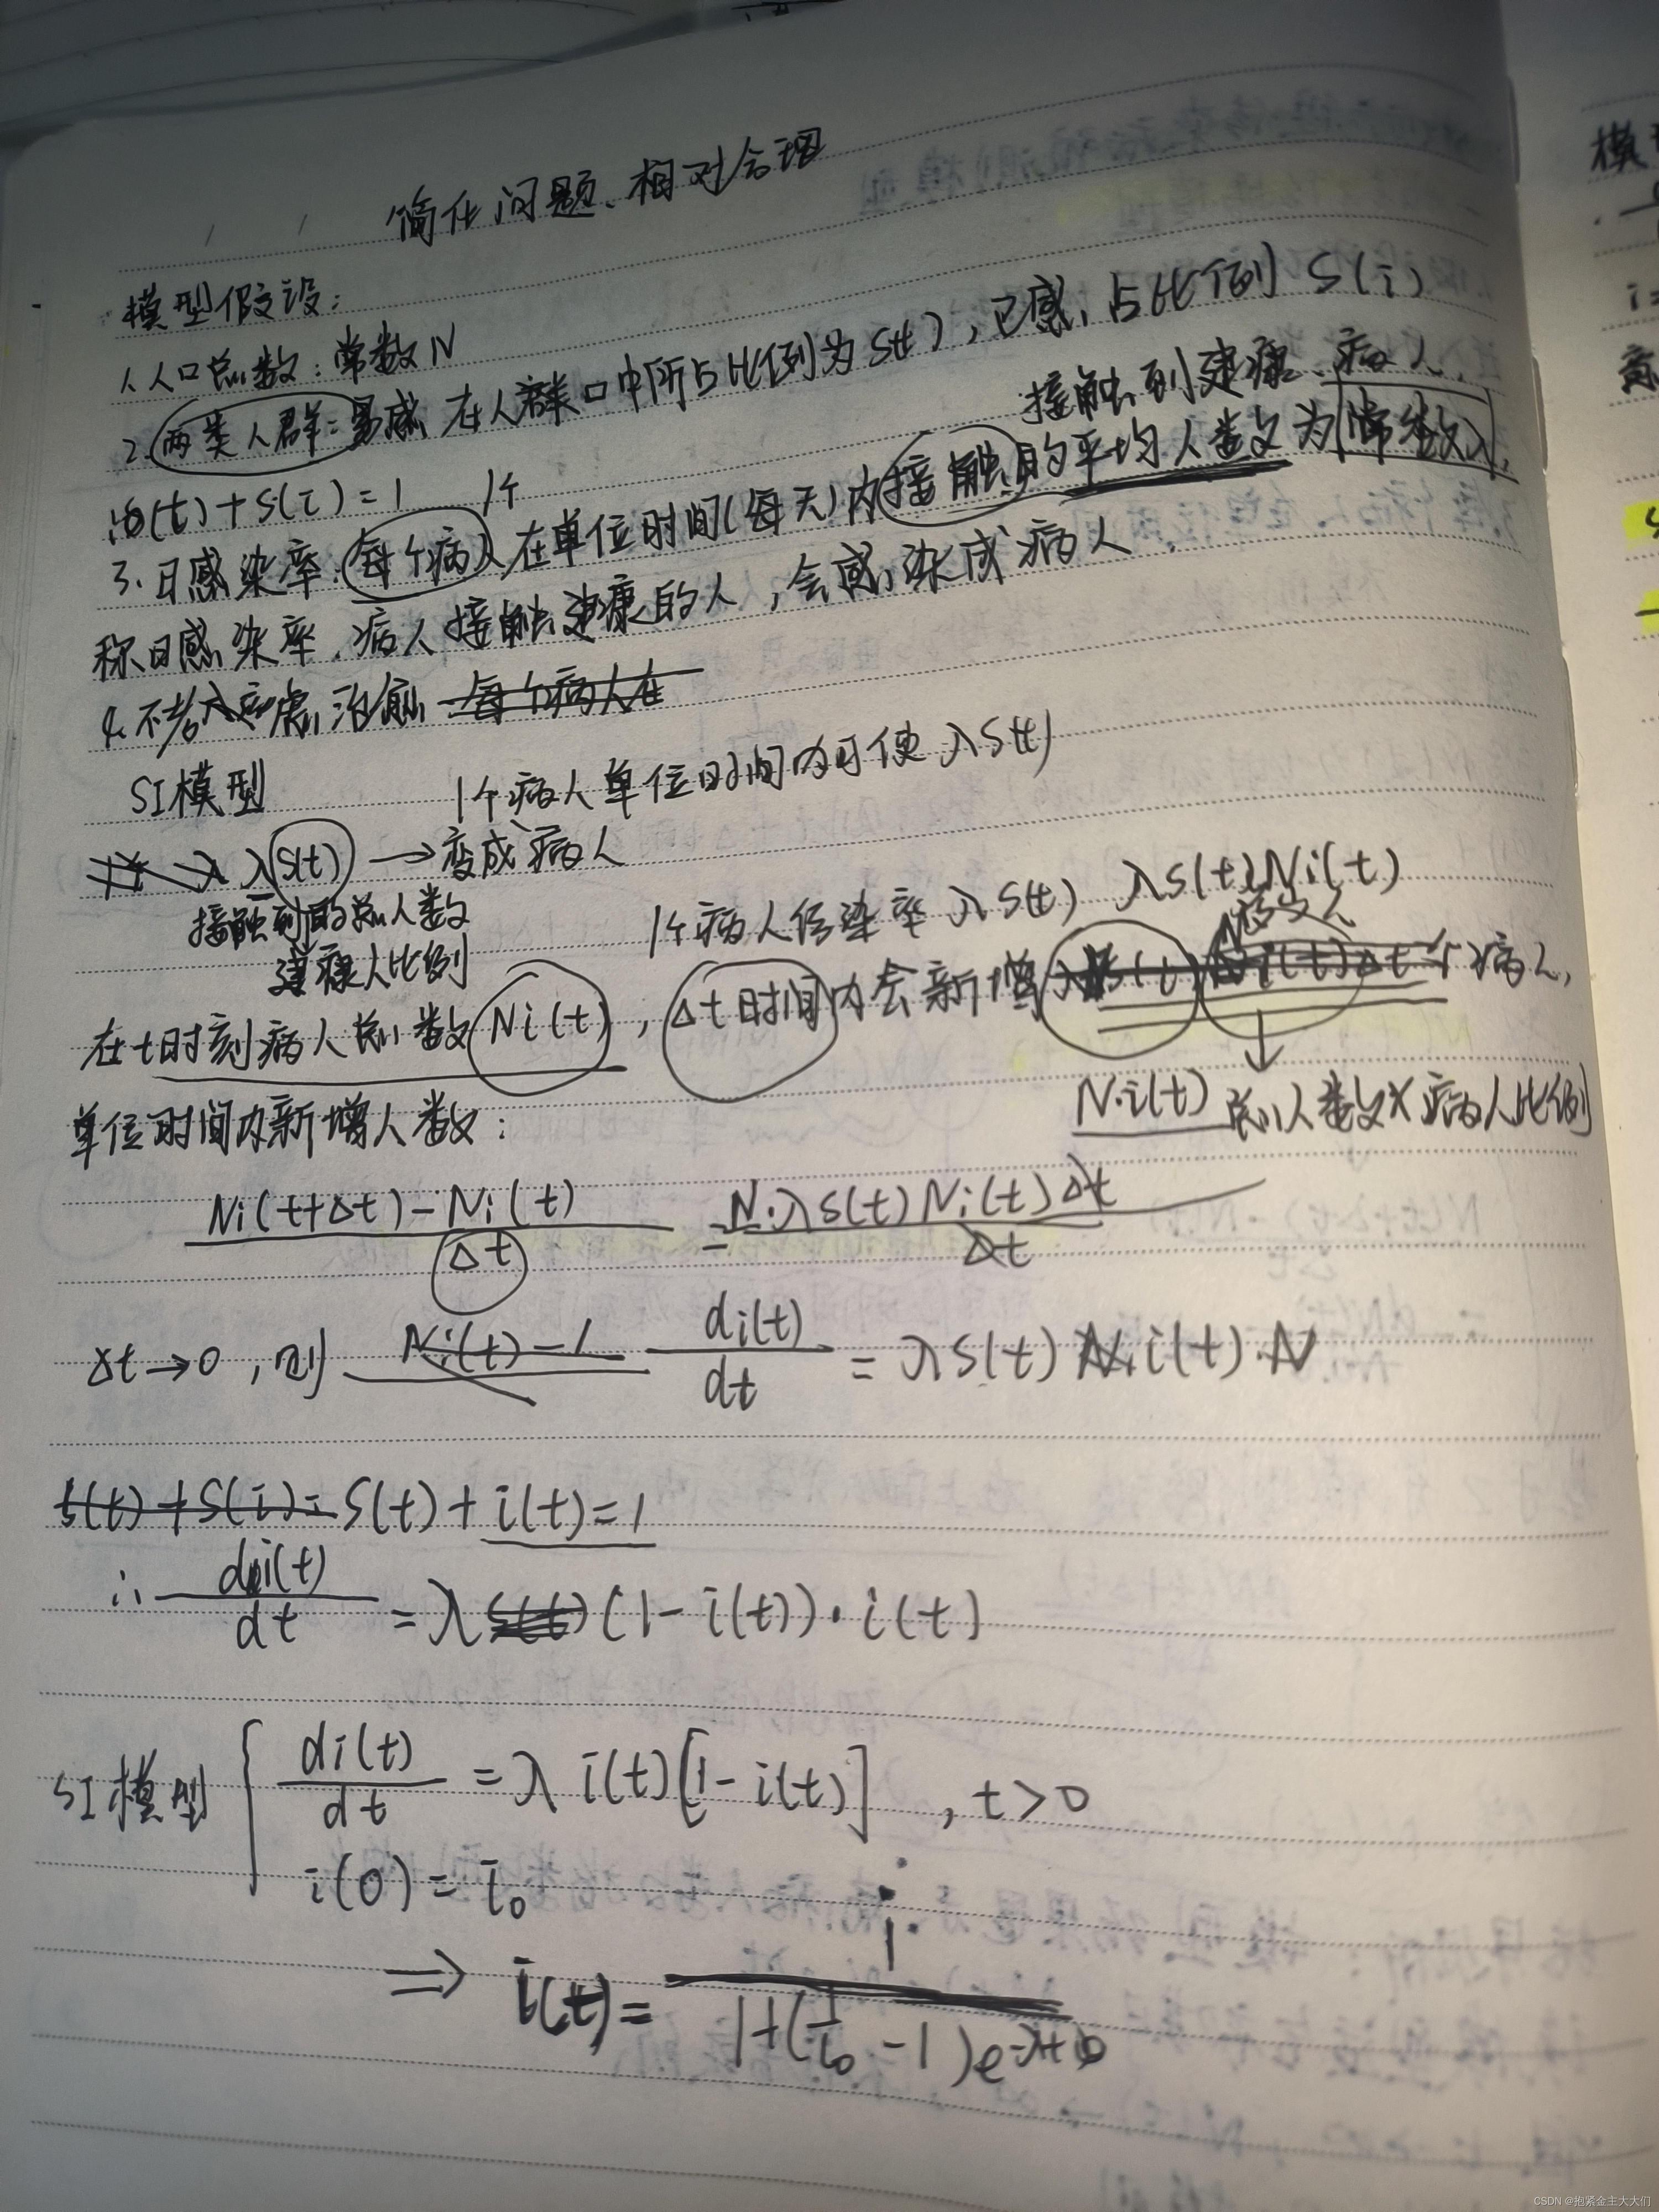 简化问题、相对合理
模型假设:
1.人口总数:常数N
2.两类人群:易感 在人群口中所占比例为S(t),已感,占比例S(i)
∴ (t)+S(i)=1 1个
接触到健康、病人
3.日感染率:每个病人在单位时间(每天)内接触的平均人数为常数λ,
称日感染率.病人接触健康的人,会感染成病人
4.不考虑治愈 每个病人在
SI模型 1个病人单位时间内可使λS(t)
λS(t) → 变成病人
接触到的总人数
健康人比例
1个病人传染率λS(t) λS(t)Ni(t)
在t时刻病人总数Ni(t),Δt时间内会新增 S(t) Ni(t)Δt个病人,
N·i(t) 总人数×病人比例
单位时间内新增人数:
Ni(t+Δt)-Ni(t) = N·λS(t)Ni(t)Δt
Δt Δt
Δt→0,则 Ni(t)-1 di(t)/dt = λS(t) N i(t)·N
S(t)+S(i)= S(t)+i(t)=1
∴ di(t)/dt = λ S(t) (1-i(t))·i(t)
SI模型 { di(t)/dt = λ i(t)[1-i(t)] ,t>0
i(0)=i₀
⇒ i(t)= 1/(1+(1/i₀ -1)e-λt)
模
CSDN @抱紧金主大大们